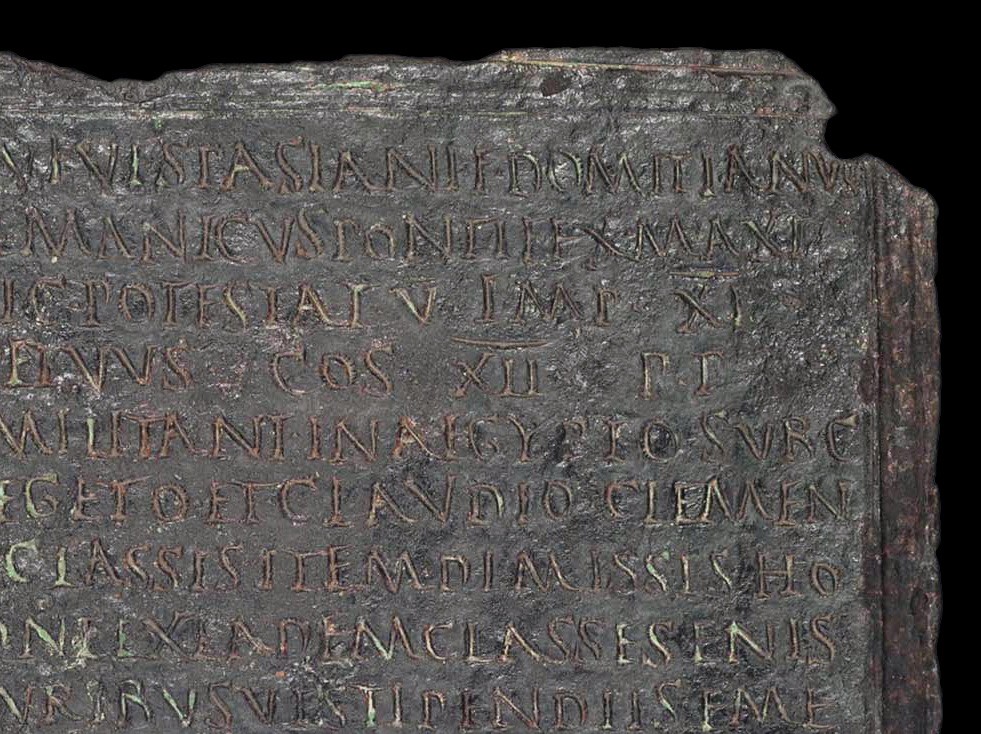 VI VESPASIANI F DOMITIANVS
MANICVS PONTIFEX MAXI
IC POTESTAT V IMP XI
ETVVS COS XII P P
MILITANT IN AEGYPTO SVB C
EGETO ET CLAVDIO CLEMEN
CLASSIS ITEM DIMISSIS HO
ONE EX EADEM CLASSE SENIS
VRIBVSVE STIPENDIIS EME